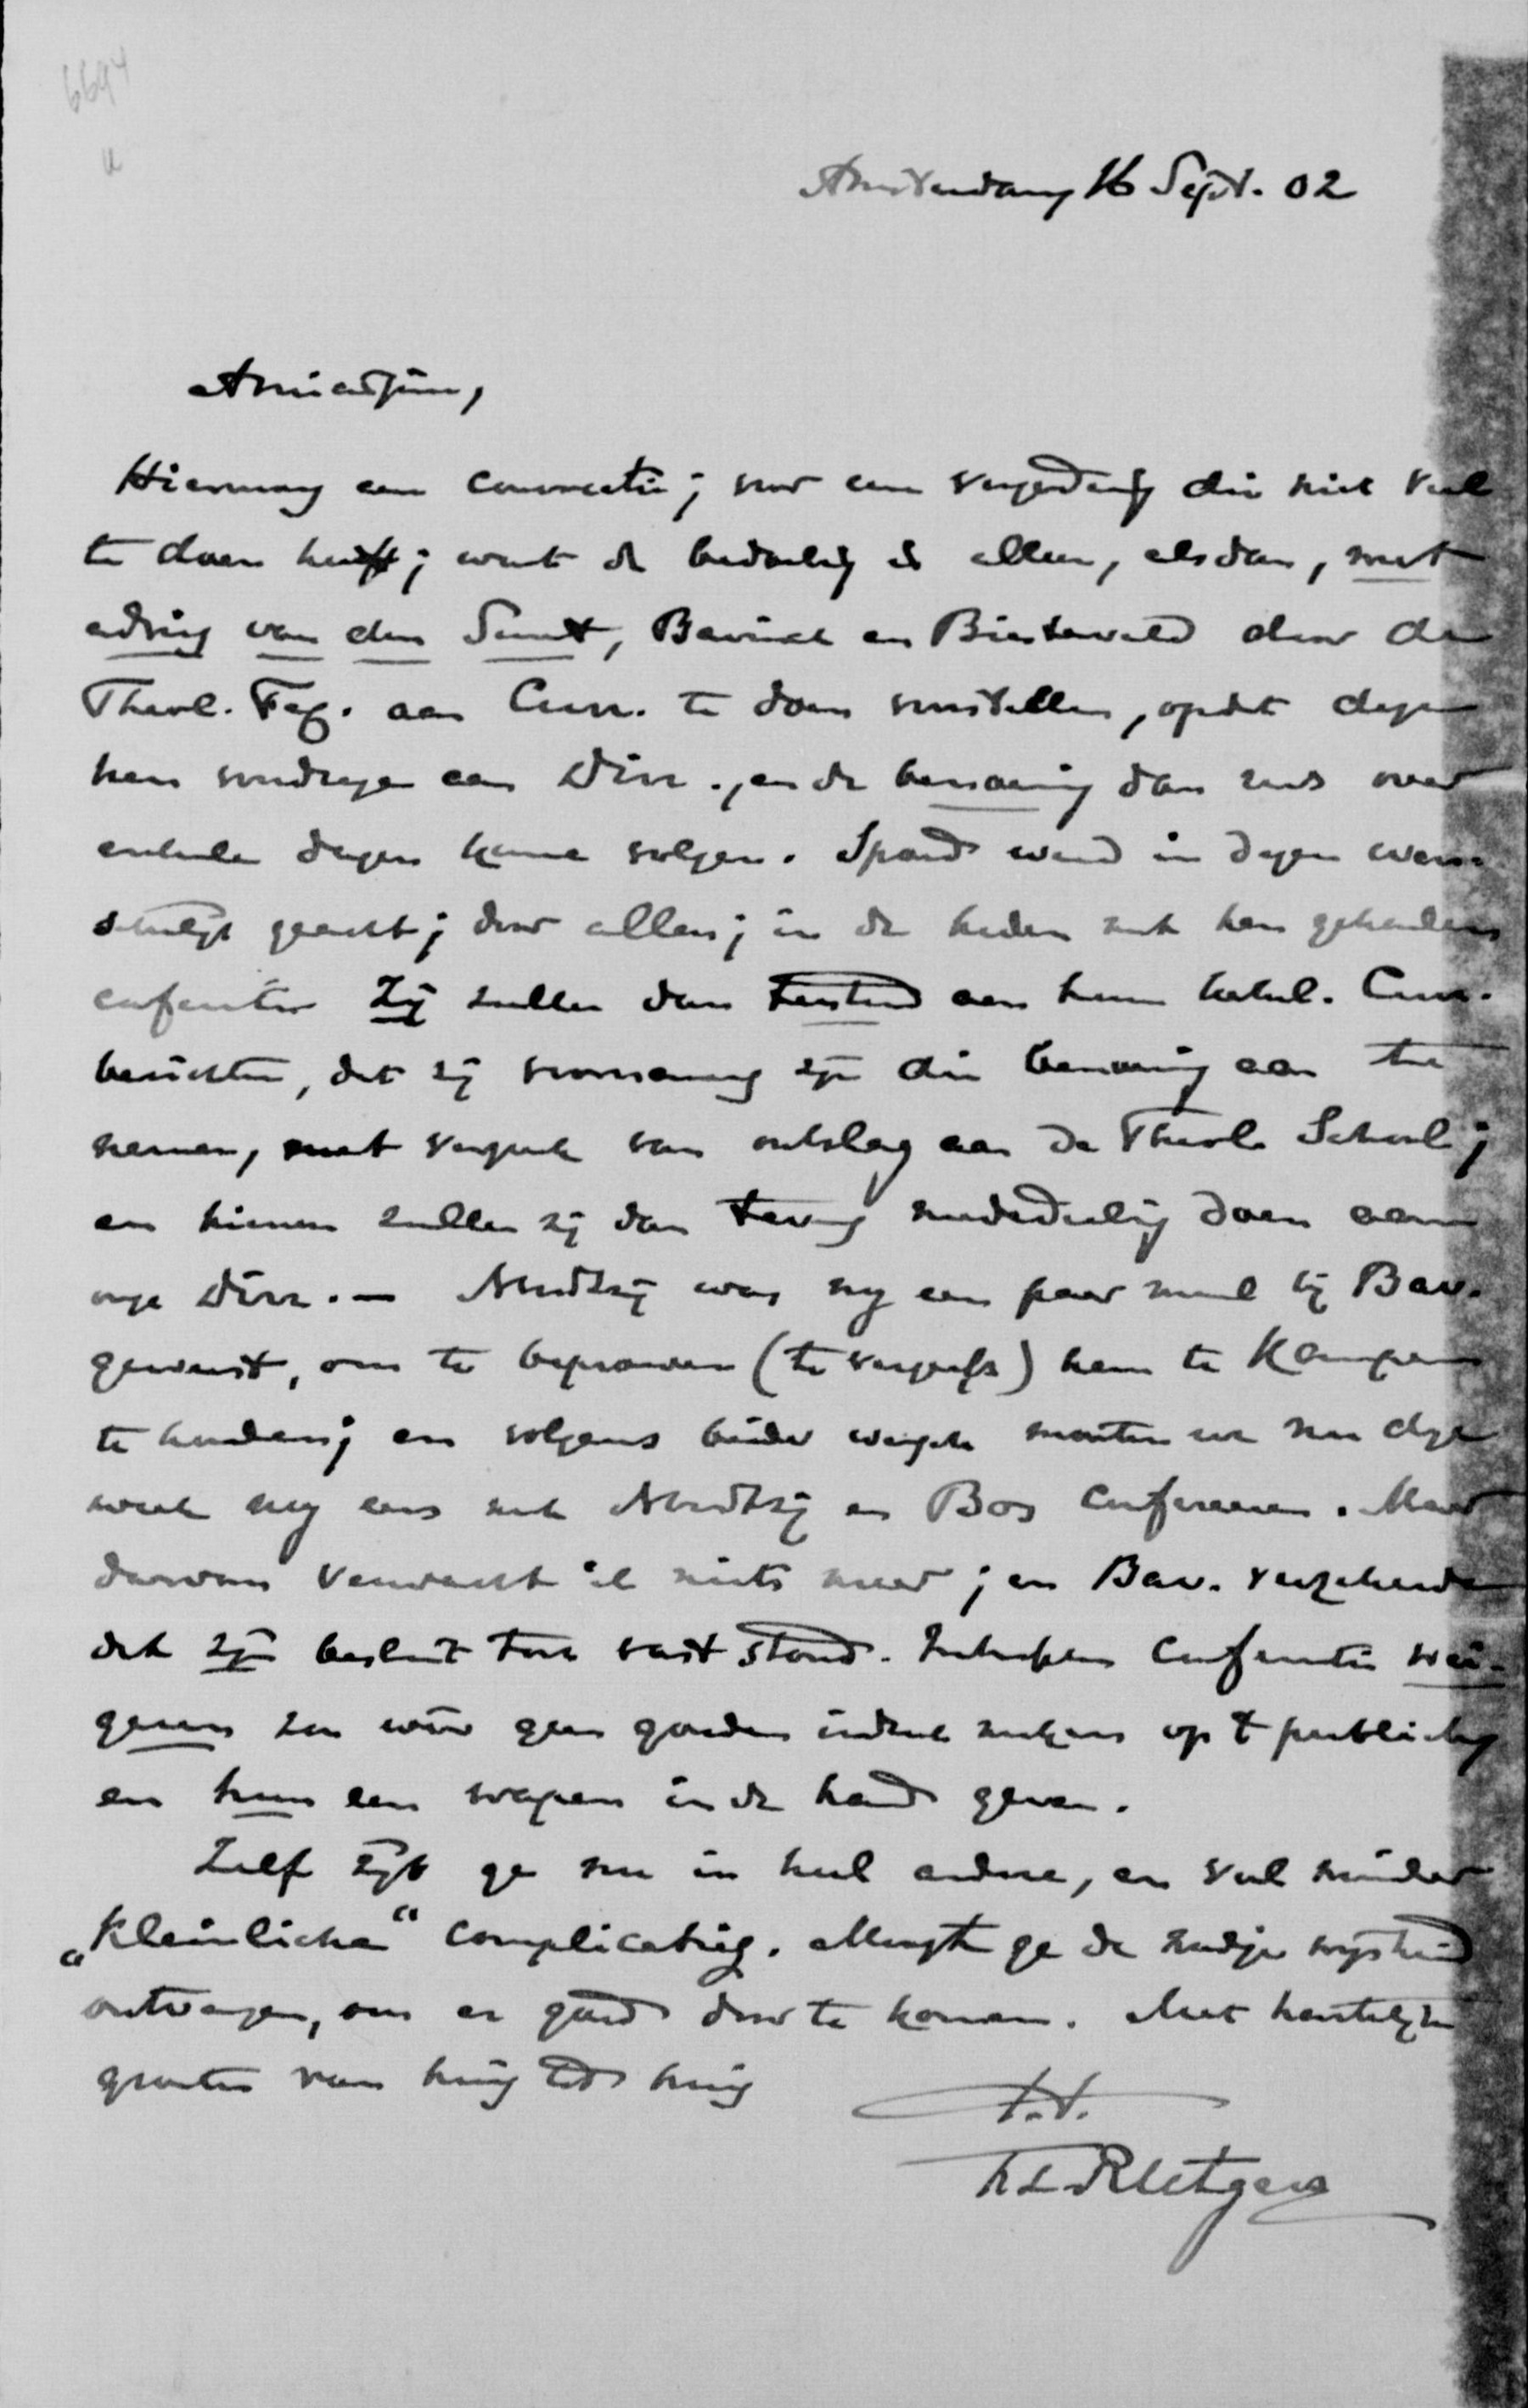 6694
u
Amsterdam 16 Sept. 02
Amicissime,
Hiernevens een convocatie; voor een vergadering die niet veel
te doen heeft; want de bedoeling is alleen, alsdan, met
advies van den Senaat, Bavinck en Biesterveld door de
Theol. Fac. aan Cur. te doen voorstellen, opdat dezen
hen voordragen aan Dirr., en de benoeming dan reeds over
enkele dagen kunne volgen. Spoed werd in dezen wen-
schelijk geacht; door allen; in de heden met hen gehouden
conferentie. Zij zullen dan terstond aan hun Cur.
berichten, dat zij voornemens zijn die benoeming aan te
nemen, met verzoek van ontslag aan de Theol. School;
en hiervan zullen zij dan terug mededeeling doen aan
onze Dirr. — Noordtzij was nog een paar maal bij Bav.
geweest, om te beproeven (te vergeefs) hem te Kampen
te houden; en volgens beider wensch moeten we nu deze
week nog eens met Noordtzij en Bos confereeren. Maar
daarvan verwacht ik niets meer; en Bav. verzekerde
dat zijn besluit toch vast stond. Intusschen conferentie wei-
geren zou weer geen goeden indruk maken op 't publiek,
en hun een wapen in de hand geven.
Zelf zijt ge nu in heel andere, en veel minder
„kleinliche" complicatiën. Moogt ge de noodige wijsheid
ontvangen, om er goed door te komen. Met hartelijke
groeten van huis tot huis
t.t.
F L Rutgers